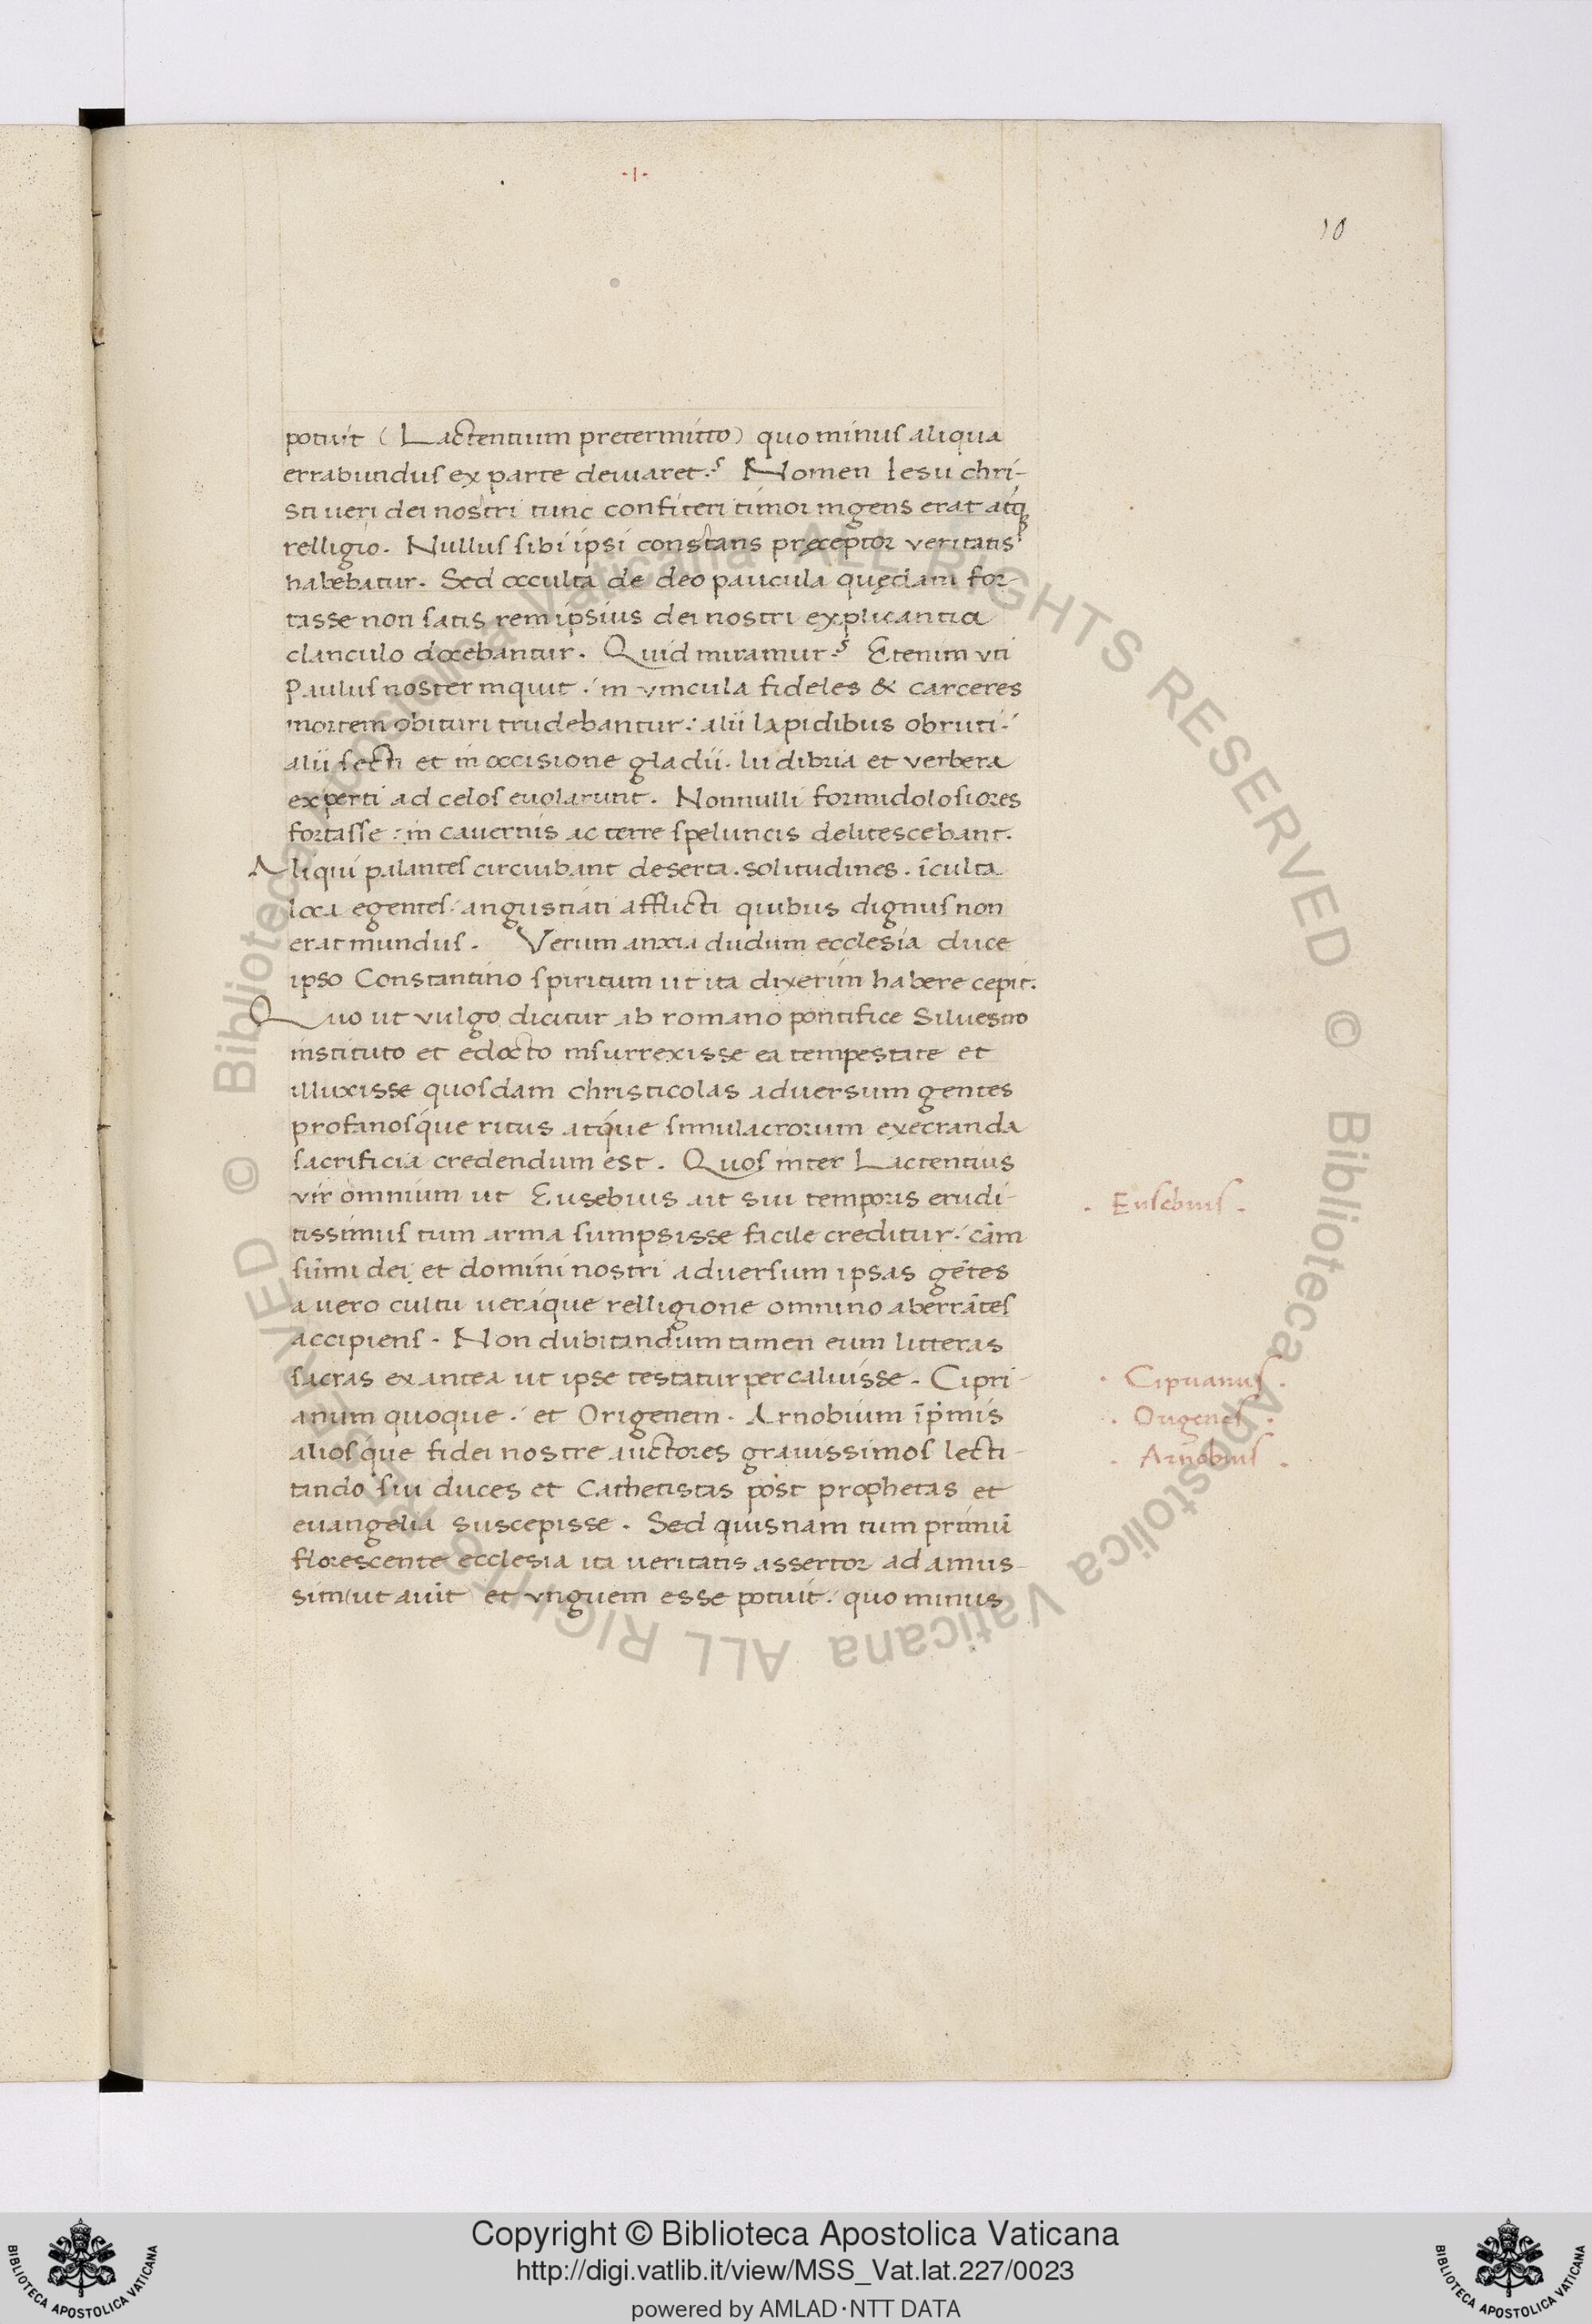 ·I·
10
potuit (Lactentium pretermitto) quo minus aliqua
errabundus ex parte deuiaret? Nomen Iesu chri-
sti ueri dei nostri tunc confiteri timor ingens erat atq
relligio. Nullus sibi ipsi constans pręceptor veritatis
habebatur. Sed occulta de deo paucula quędam for-
tasse non satis rem ipsius dei nostri explicantia
clanculo docebantur. Quid miramur? Etenim vti
Paulus noster inquit: in vincula fideles & carceres
mortem obituri trudebantur: alii lapidibus obruti:
alii secti et in occisione gladii. ludibria et verbera
experti ad celos euolarunt. Nonnulli formidolosiores
fortasse: in cauernis ac terre speluncis delitescebant.
Aliqui palantes circuibant deserta. solitudines. īculta
loca egentes: angustiati afflicti quibus dignus non
erat mundus. Verum anxia dudum ecclesia duce
ipso Constantino spiritum ut ita dixerim habere cepit.
Quo ut vulgo dicitur ab romano pontifice Siluestro
instituto et edocto insurrexisse ea tempestate et
illuxisse quosdam christicolas aduersum gentes
profanosque ritus atque simulacrorum execranda
sacrificia credendum est. Quos inter Lactentius
vir omnium ut Eusebius ait sui temporis erudi-
tissimus tum arma sumpsisse facile creditur: cām
sūmi dei et domini nostri aduersum ipsas gētes
a uero cultu ueraque relligione omnino aberrātes
accipiens. Non dubitandum tamen eum litteras
sacras ex antea ut ipse testatur percaluisse. Cipri-
anum quoque: et Origenem. Arnobium īpmis
aliosque fidei nostre auctores grauissimos lecti-
tando sui duces et Cathetistas post prophetas et
euangelia suscepisse. Sed quisnam tum primū
florescente ecclesia ita ueritatis assertor ad amus-
sim (ut aiūt) et vnguem esse potuit: quo minus
· Eusebius ·
· Ciprianus ·
· Origenes ·
· Arnobius ·
© Biblioteca Apostolica Vaticana ALL RIGHTS RESERVED © Biblioteca Apostolica Vaticana ALL RIGHTS RESERVED
Copyright © Biblioteca Apostolica Vaticana
http://digi.vatlib.it/view/MSS_Vat.lat.227/0023
powered by AMLAD·NTT DATA
BIBLIOTECA APOSTOLICA VATICANA
BIBLIOTECA APOSTOLICA VATICANA